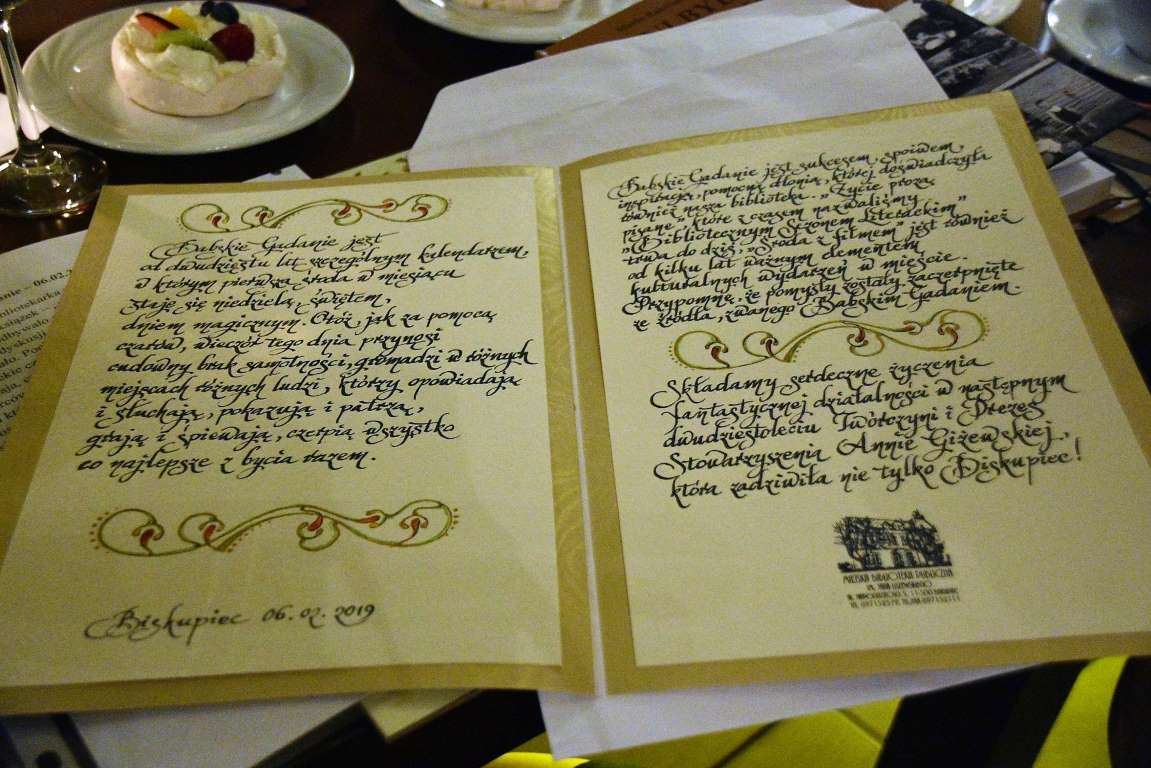 Babskie Gadanie jest
od dwudziestu lat szczególnym kalendarzem,
w którym pierwsza środa w miesiącu
staje się niedzielą, świętem,
dniem magicznym. Otóż, jak za pomocą
czarów, wieczór tego dnia przynosi
cudowny brak samotności, gromadzi w różnych
miejscach różnych ludzi, którzy opowiadają
i słuchają, pokazują i patrzą,
grają i śpiewają, czerpią wszystko
co najlepsze z bycia razem.
Biskupiec 06.02.2019
Babskie Gadanie jest sukcesem, spoiwem,
inspiracją, pomocną dłonią, której doświadczyła
również nasza biblioteka. „Życie prozą
pisane", które z czasem nazwaliśmy
„Bibliotecznym Sezonem Literackim"
trwa do dziś, „Środa z filmem" jest również
od kilku lat ważnym elementem
kulturalnych wydarzeń w mieście.
Przypomnę, że pomysły zostały zaczerpnięte
ze źródła, zwanego Babskim Gadaniem.
Składamy serdeczne życzenia
fantastycznej działalności w następnym
dwudziestoleciu Twórczyni i Prezes
Stowarzyszenia Annie Giżewskiej,
która zadziwiła nie tylko Biskupiec!
MIEJSKA BIBLIOTEKA PUBLICZNA
anie – 06.02.2